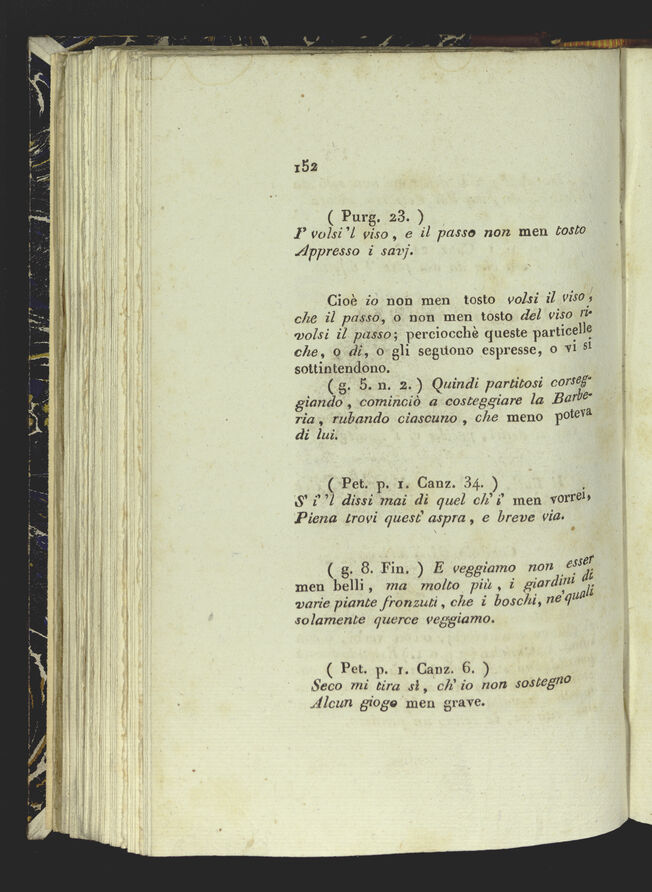 152
( Purg. 23. )
I' volsi 'l viso, e il passo non men tosto
Appresso i savj.
Cioè io non men tosto volsi il viso,
che il passo, o non men tosto del viso ri-
volsi il passo; perciocchè queste particelle
che, o di, o gli seguono espresse, o vi si
sottintendono.
( g. 5. n. 2. ) Quindi partitosi corseg-
giando, cominciò a costeggiare la Barbe-
ria, rubando ciascuno, che meno poteva
di lui.
( Pet. p. 1. Canz. 34. )
S' i' 'l dissi mai di quel ch' i' men vorrei,
Piena trovi quest' aspra, e breve via.
( g. 8. Fin. ) E veggiamo non esser
men belli, ma molto più, i giardini di
varie piante fronzuti, che i boschi, ne' quali
solamente querce veggiamo.
( Pet. p. 1. Canz. 6. )
Seco mi tira sì, ch' io non sostegno
Alcun giogo men grave.